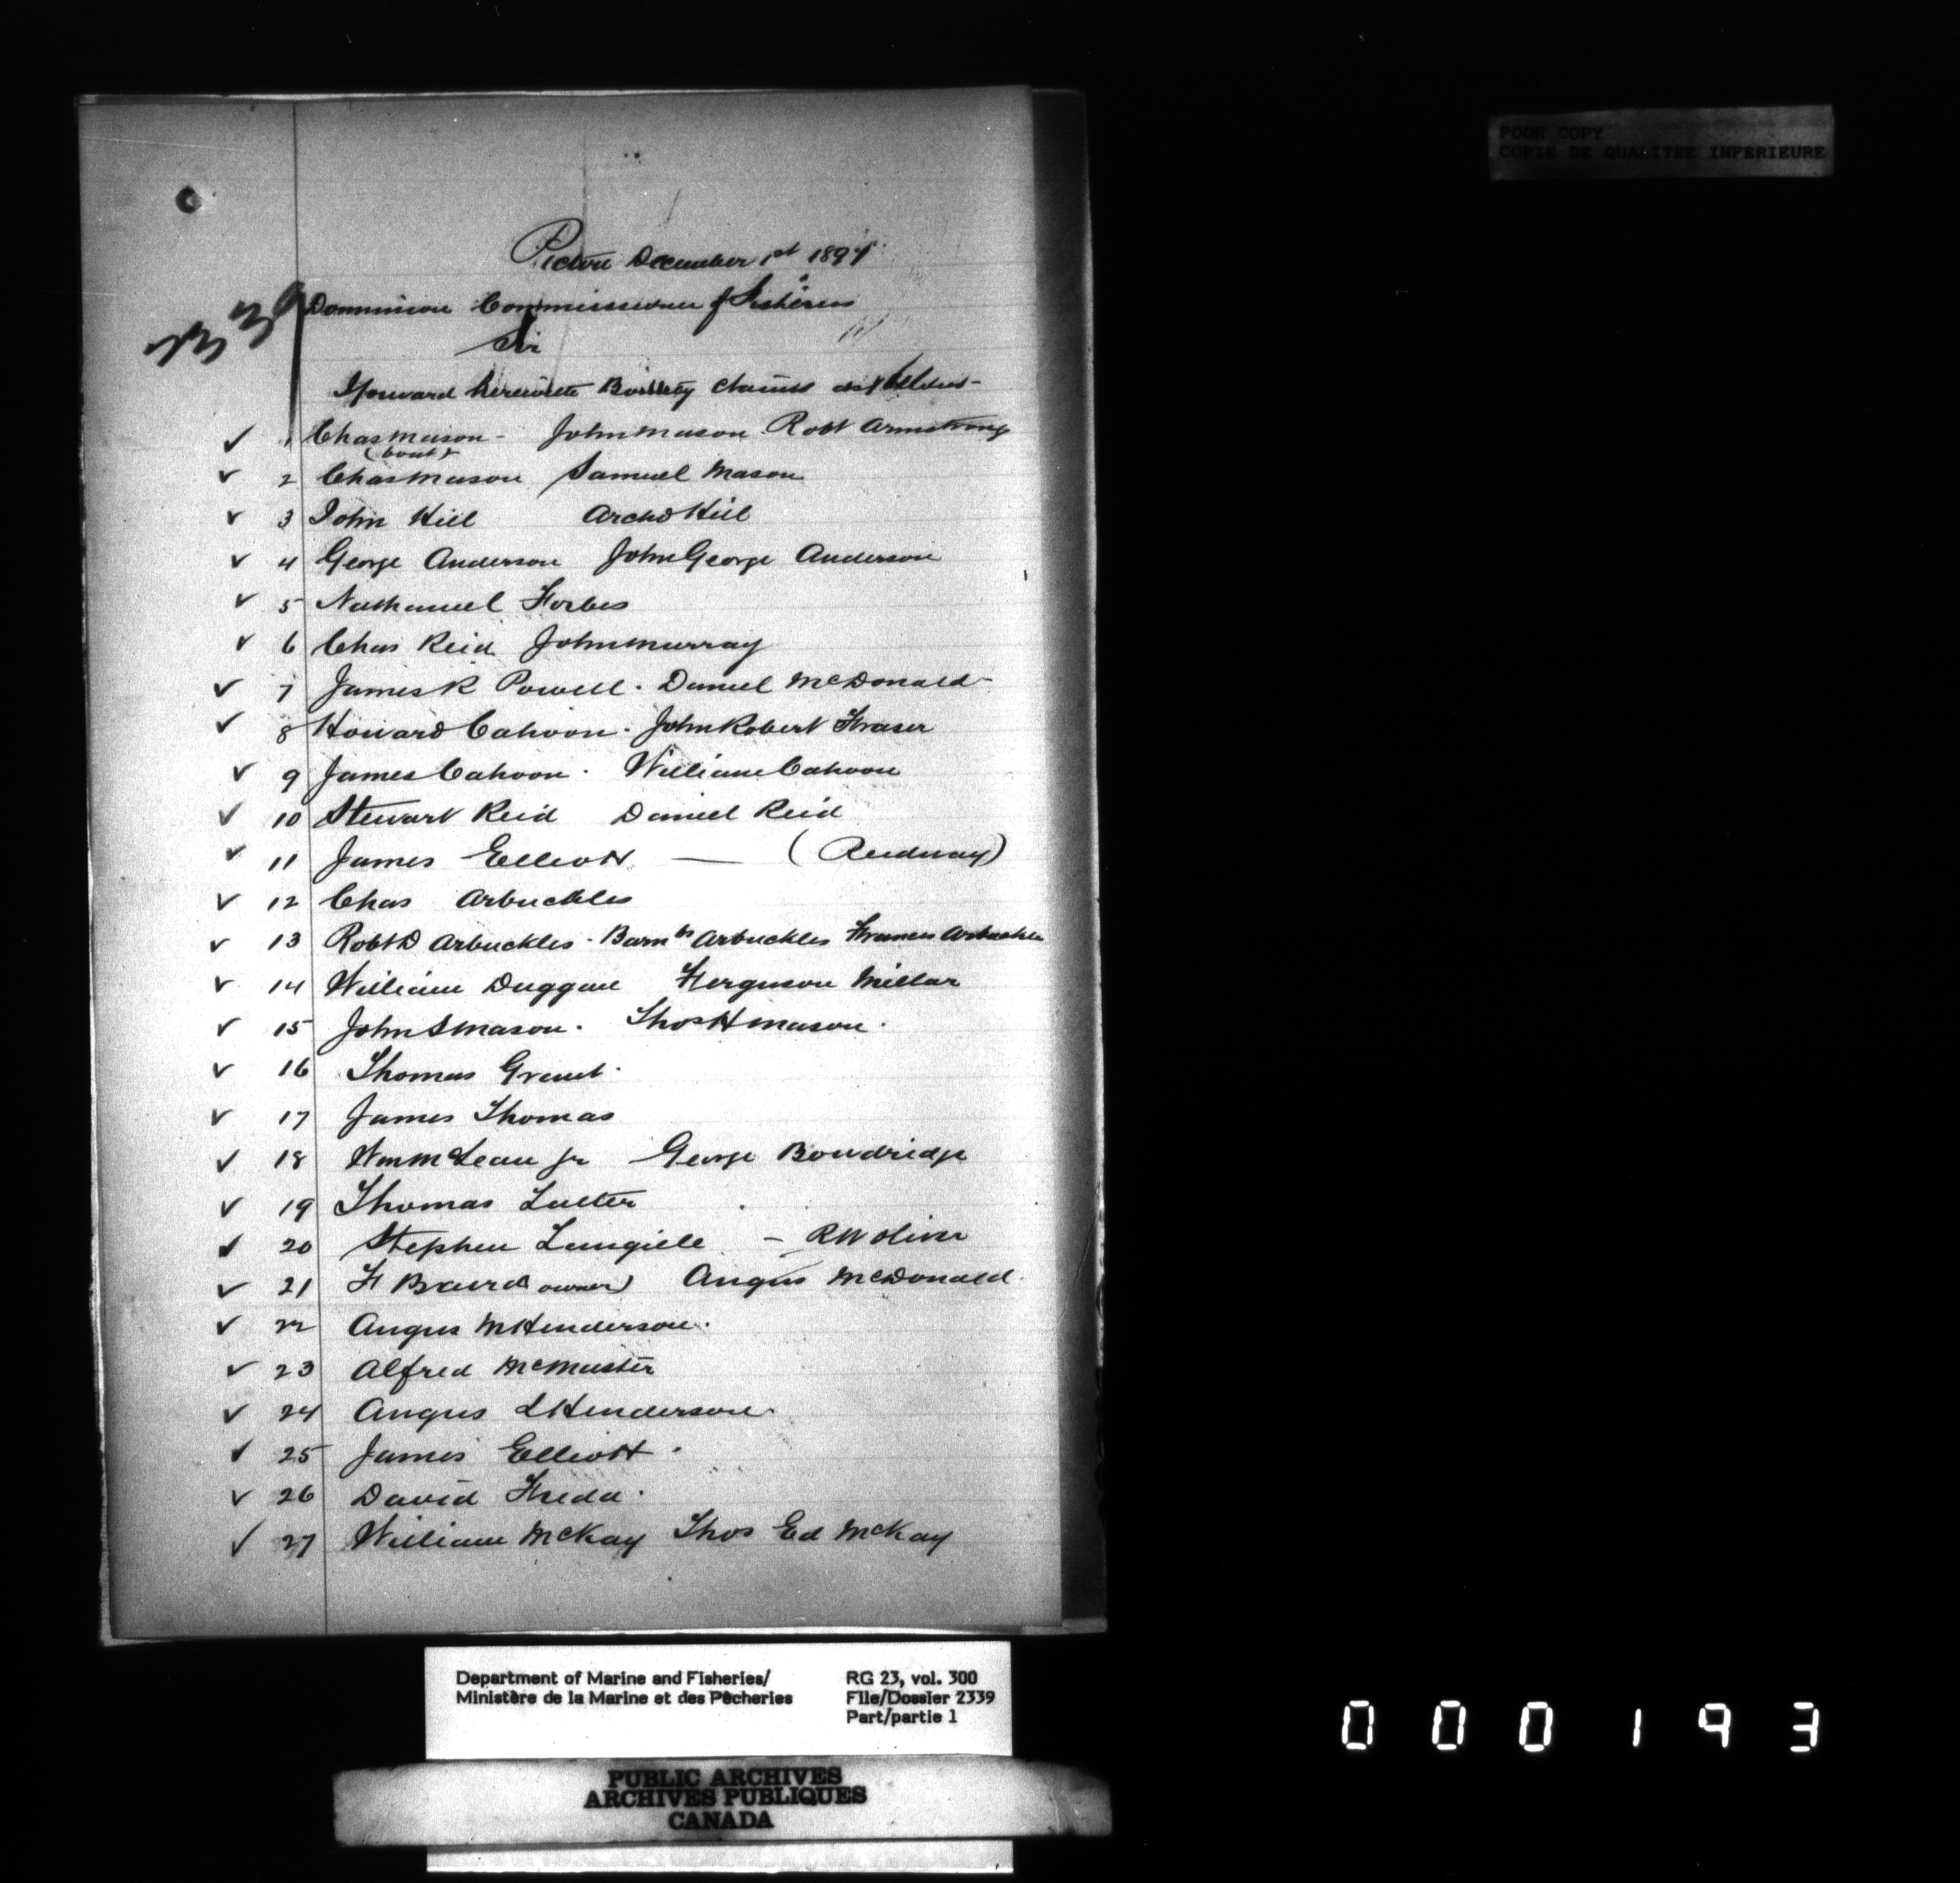 POOR COPY
COPIE DE QUALITEE INFERIEURE
Pictou December 1st 1897
2339
Dominion Commissioner of Fisheries
Sir
I forward herewith Bounty claims as follows-
✓ 1 Chas Mason - John Mason Robt Armstrong
(boat)
✓ 2 Chas Mason Samuel Mason
✓ 3 John Hill Archd Hill
✓ 4 George Anderson John George Anderson
✓ 5 Nathaniel Forbes
✓ 6 Chas Reid John Murray
✓ 7 James R Powell. Daniel McDonald-
✓ 8 Howard Cahoon. John Robert Fraser
✓ 9 James Cahoon. William Cahoon
✓ 10 Stewart Reid Daniel Reid
✓ 11 James Elliott — (Reidway)
✓ 12 Chas Arbuckles
✓ 13 Robt D Arbuckles - Arbuckles Francis Arbuckles
✓ 14 William Duggan Ferguson Millar
✓ 15 John S Mason. Thos H Mason.
✓ 16 Thomas Grant.
✓ 17 James Thomas
✓ 18 Wm McLean Jr George Boudridge
✓ 19 Thomas
✓ 20 Stephen Langille - RW Oliver
✓ 21 F Baird owner) Angus McDonald
✓ 22 Angus M Henderson.
✓ 23 Alfred McMaster
✓ 24 Angus L Henderson.
✓ 25 James Elliott.
✓ 26 David
✓ 27 William McKay Thos Ed McKay
Department of Marine and Fisheries/
Ministère de la Marine et des Pêcheries
RG 23, vol. 300
File/Dossier 2339
Part/partie 1
PUBLIC ARCHIVES
ARCHIVES PUBLIQUES
CANADA
000193